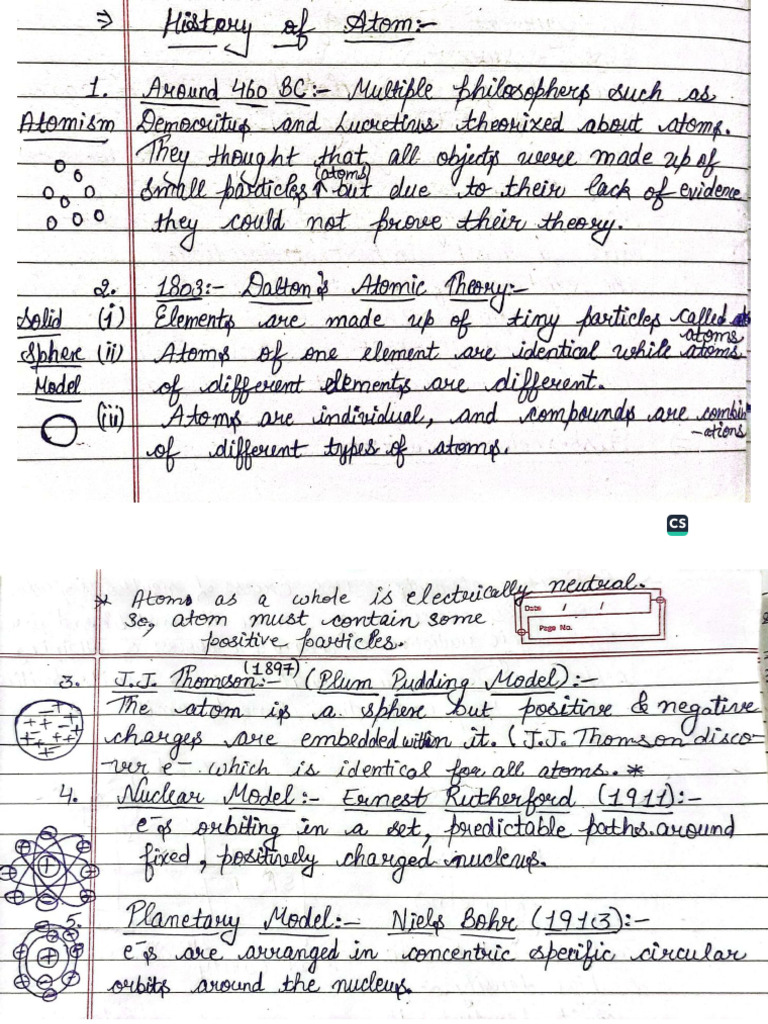 ⇒ History of Atom:-
1. Around 460 BC:- Multiple philosophers such as
Atomism Democritus and Lucretius theorized about atoms.
They thought that all objects were made up of
(atoms)
small particles ↑ but due to their lack of evidence
they could not prove their theory.
2. 1803:- Dalton's Atomic Theory:-
Solid (i) Elements are made up of tiny particles called
atoms
Sphere (ii) Atoms of one element are identical while atoms
Model of different elements are different.
(iii) Atoms are individual, and compounds are combin
-ations
of different types of atoms.
CS
* Atoms as a whole is electrically neutral.
So, atom must contain some
positive particles.
Date / /
Page No.
3. J.J. Thomson:- (1897) (Plum Pudding Model):-
The atom is a sphere but positive & negative
charges are embedded within it. (J.J. Thomson disco-
-verr e⁻ which is identical for all atoms. *
4. Nuclear Model:- Ernest Rutherford (1911):-
e⁻s orbiting in a set, predictable paths around
fixed, positively charged nucleus.
5. Planetary Model:- Niels Bohr (1913):-
e⁻s are arranged in concentric specific circular
orbits around the nucleus.